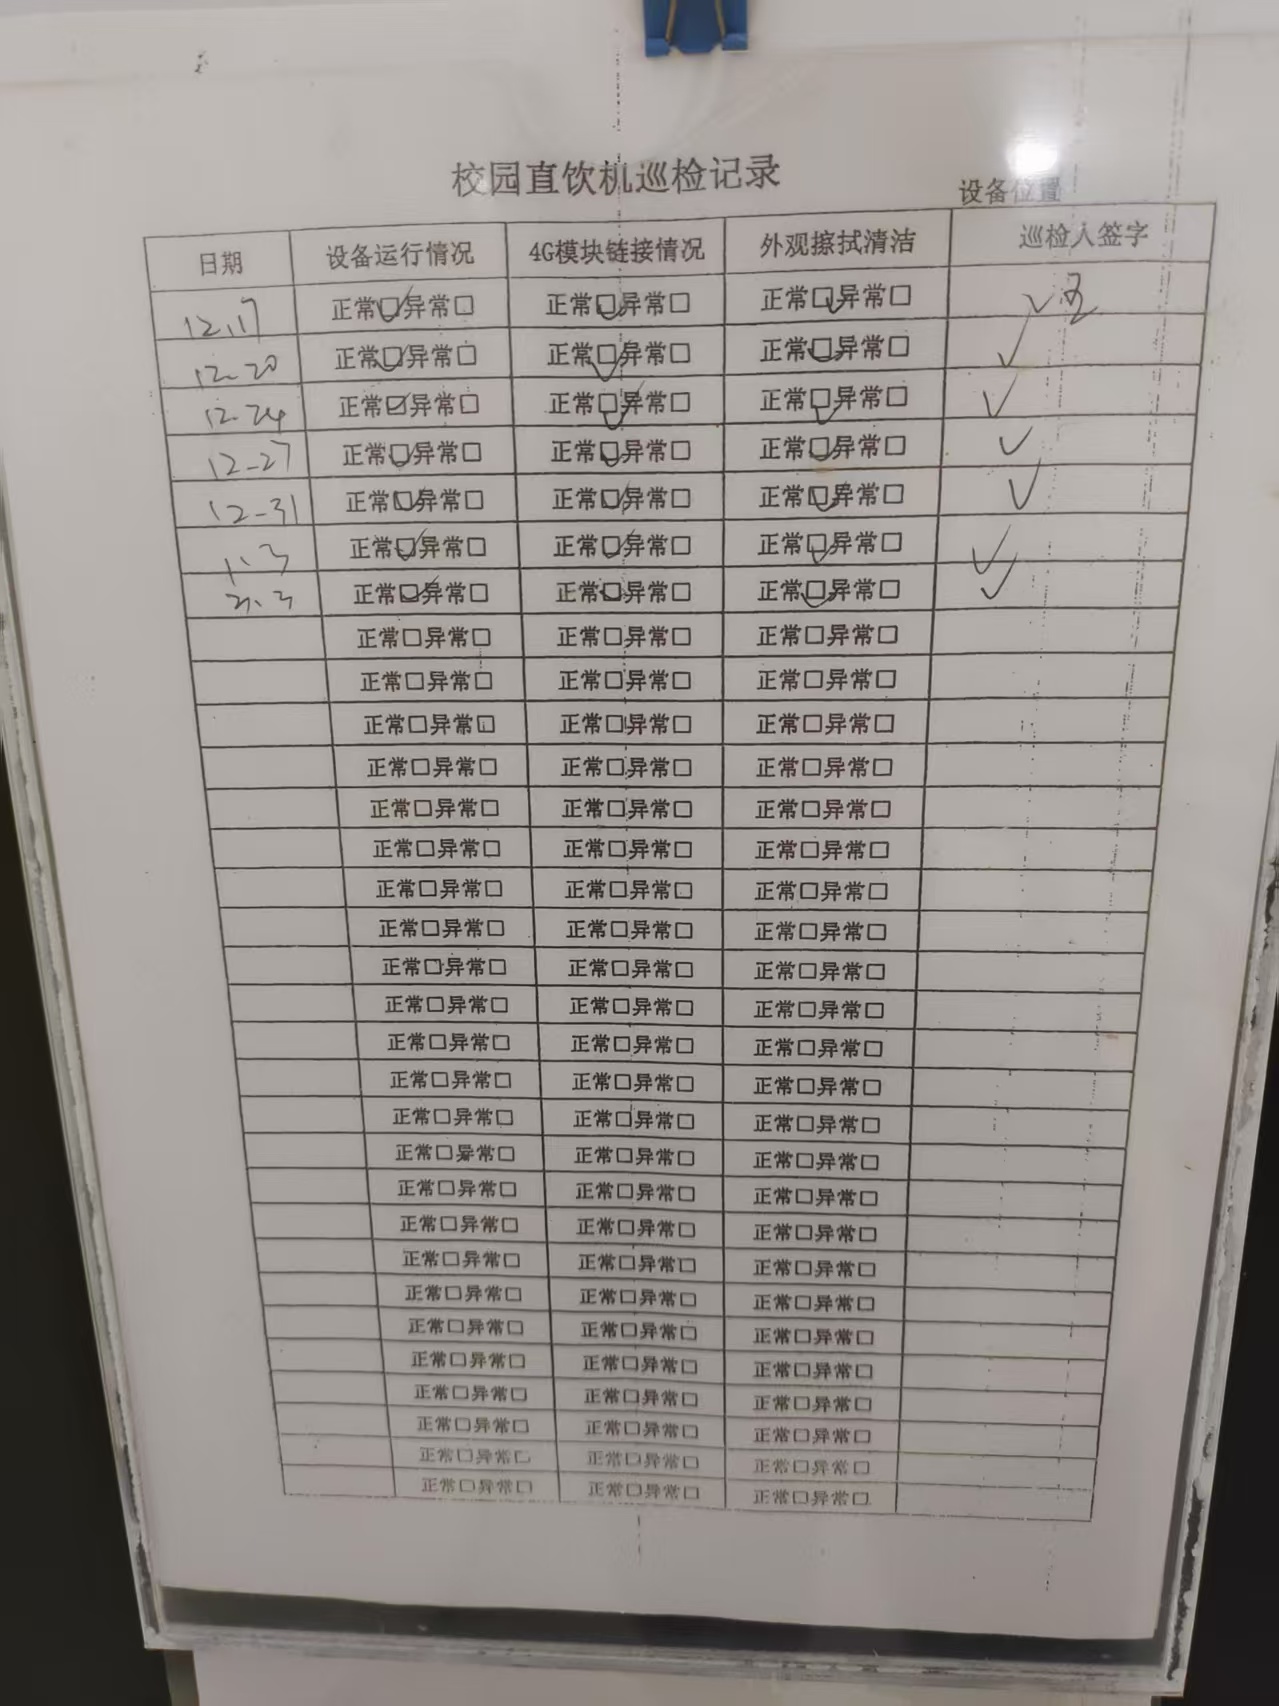 校园直饮机巡检记录
设备位置
日期 设备运行情况 4G模块链接情况 外观擦拭清洁 巡检人签字
12.17 正常☑异常□ 正常☑异常□ 正常☑异常□ ✓
12-20 正常☑异常□ 正常☑异常□ 正常☑异常□ ✓
12-24 正常☑异常□ 正常☑异常□ 正常☑异常□ ✓
12-27 正常☑异常□ 正常☑异常□ 正常☑异常□ ✓
12-31 正常☑异常□ 正常☑异常□ 正常☑异常□ ✓
1.3 正常☑异常□ 正常☑异常□ 正常☑异常□ ✓
正常☑异常□ 正常☑异常□ 正常☑异常□ ✓
正常□异常□ 正常□异常□ 正常□异常□
正常□异常□ 正常□异常□ 正常□异常□
正常□异常□ 正常□异常□ 正常□异常□
正常□异常□ 正常□异常□ 正常□异常□
正常□异常□ 正常□异常□ 正常□异常□
正常□异常□ 正常□异常□ 正常□异常□
正常□异常□ 正常□异常□ 正常□异常□
正常□异常□ 正常□异常□ 正常□异常□
正常□异常□ 正常□异常□ 正常□异常□
正常□异常□ 正常□异常□ 正常□异常□
正常□异常□ 正常□异常□ 正常□异常□
正常□异常□ 正常□异常□ 正常□异常□
正常□异常□ 正常□异常□ 正常□异常□
正常□异常□ 正常□异常□ 正常□异常□
正常□异常□ 正常□异常□ 正常□异常□
正常□异常□ 正常□异常□ 正常□异常□
正常□异常□ 正常□异常□ 正常□异常□
正常□异常□ 正常□异常□ 正常□异常□
正常□异常□ 正常□异常□ 正常□异常□
正常□异常□ 正常□异常□ 正常□异常□
正常□异常□ 正常□异常□ 正常□异常□
正常□异常□ 正常□异常□ 正常□异常□
正常□异常□ 正常□异常□ 正常□异常□
正常□异常□ 正常□异常□ 正常□异常□